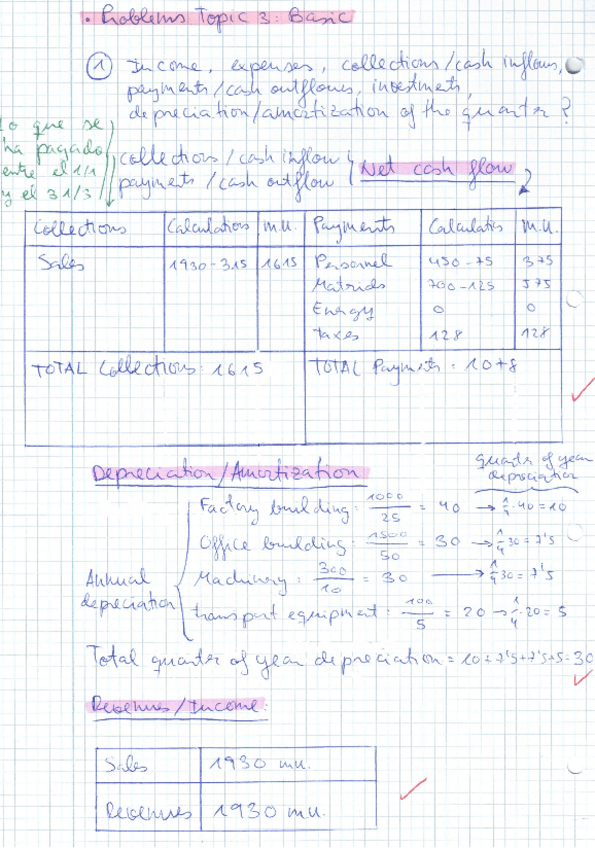 · Problems Topic 3: Basic
1 Income, expenses, collections/cash inflows,
payments/cash outflows, investments,
depreciation/amortization of the quarter?
lo que se
ha pagado
entre el 1/1
y el 31/3
collections/cash inflow
payments/cash outflow
Net cash flow
Collections Calculations m.u. Payments Calculatis m.u.
Sales 1930-315 1615 Personnel 450-75 375
Materials 700-125 575
Energy 0 0
Taxes 128 128
TOTAL Collections: 1615 TOTAL Payments: 1078
Depreciation/Amortization
quarter of year
depreciation
Annual
depreciation
Factory building: 1000/25 = 40 → 1/4·40=10
Office building: 1500/50 = 30 → 1/4 30=7'5
Machinery: 300/10 = 30 → 1/4 30=7'5
transport equipment: 100/5 = 20 → 1/4·20=5
Total quarter of year depreciation = 10+7'5+7'5+5=30
Revenues/Income:
Sales 1930 mu.
Revenues 1930 mu.